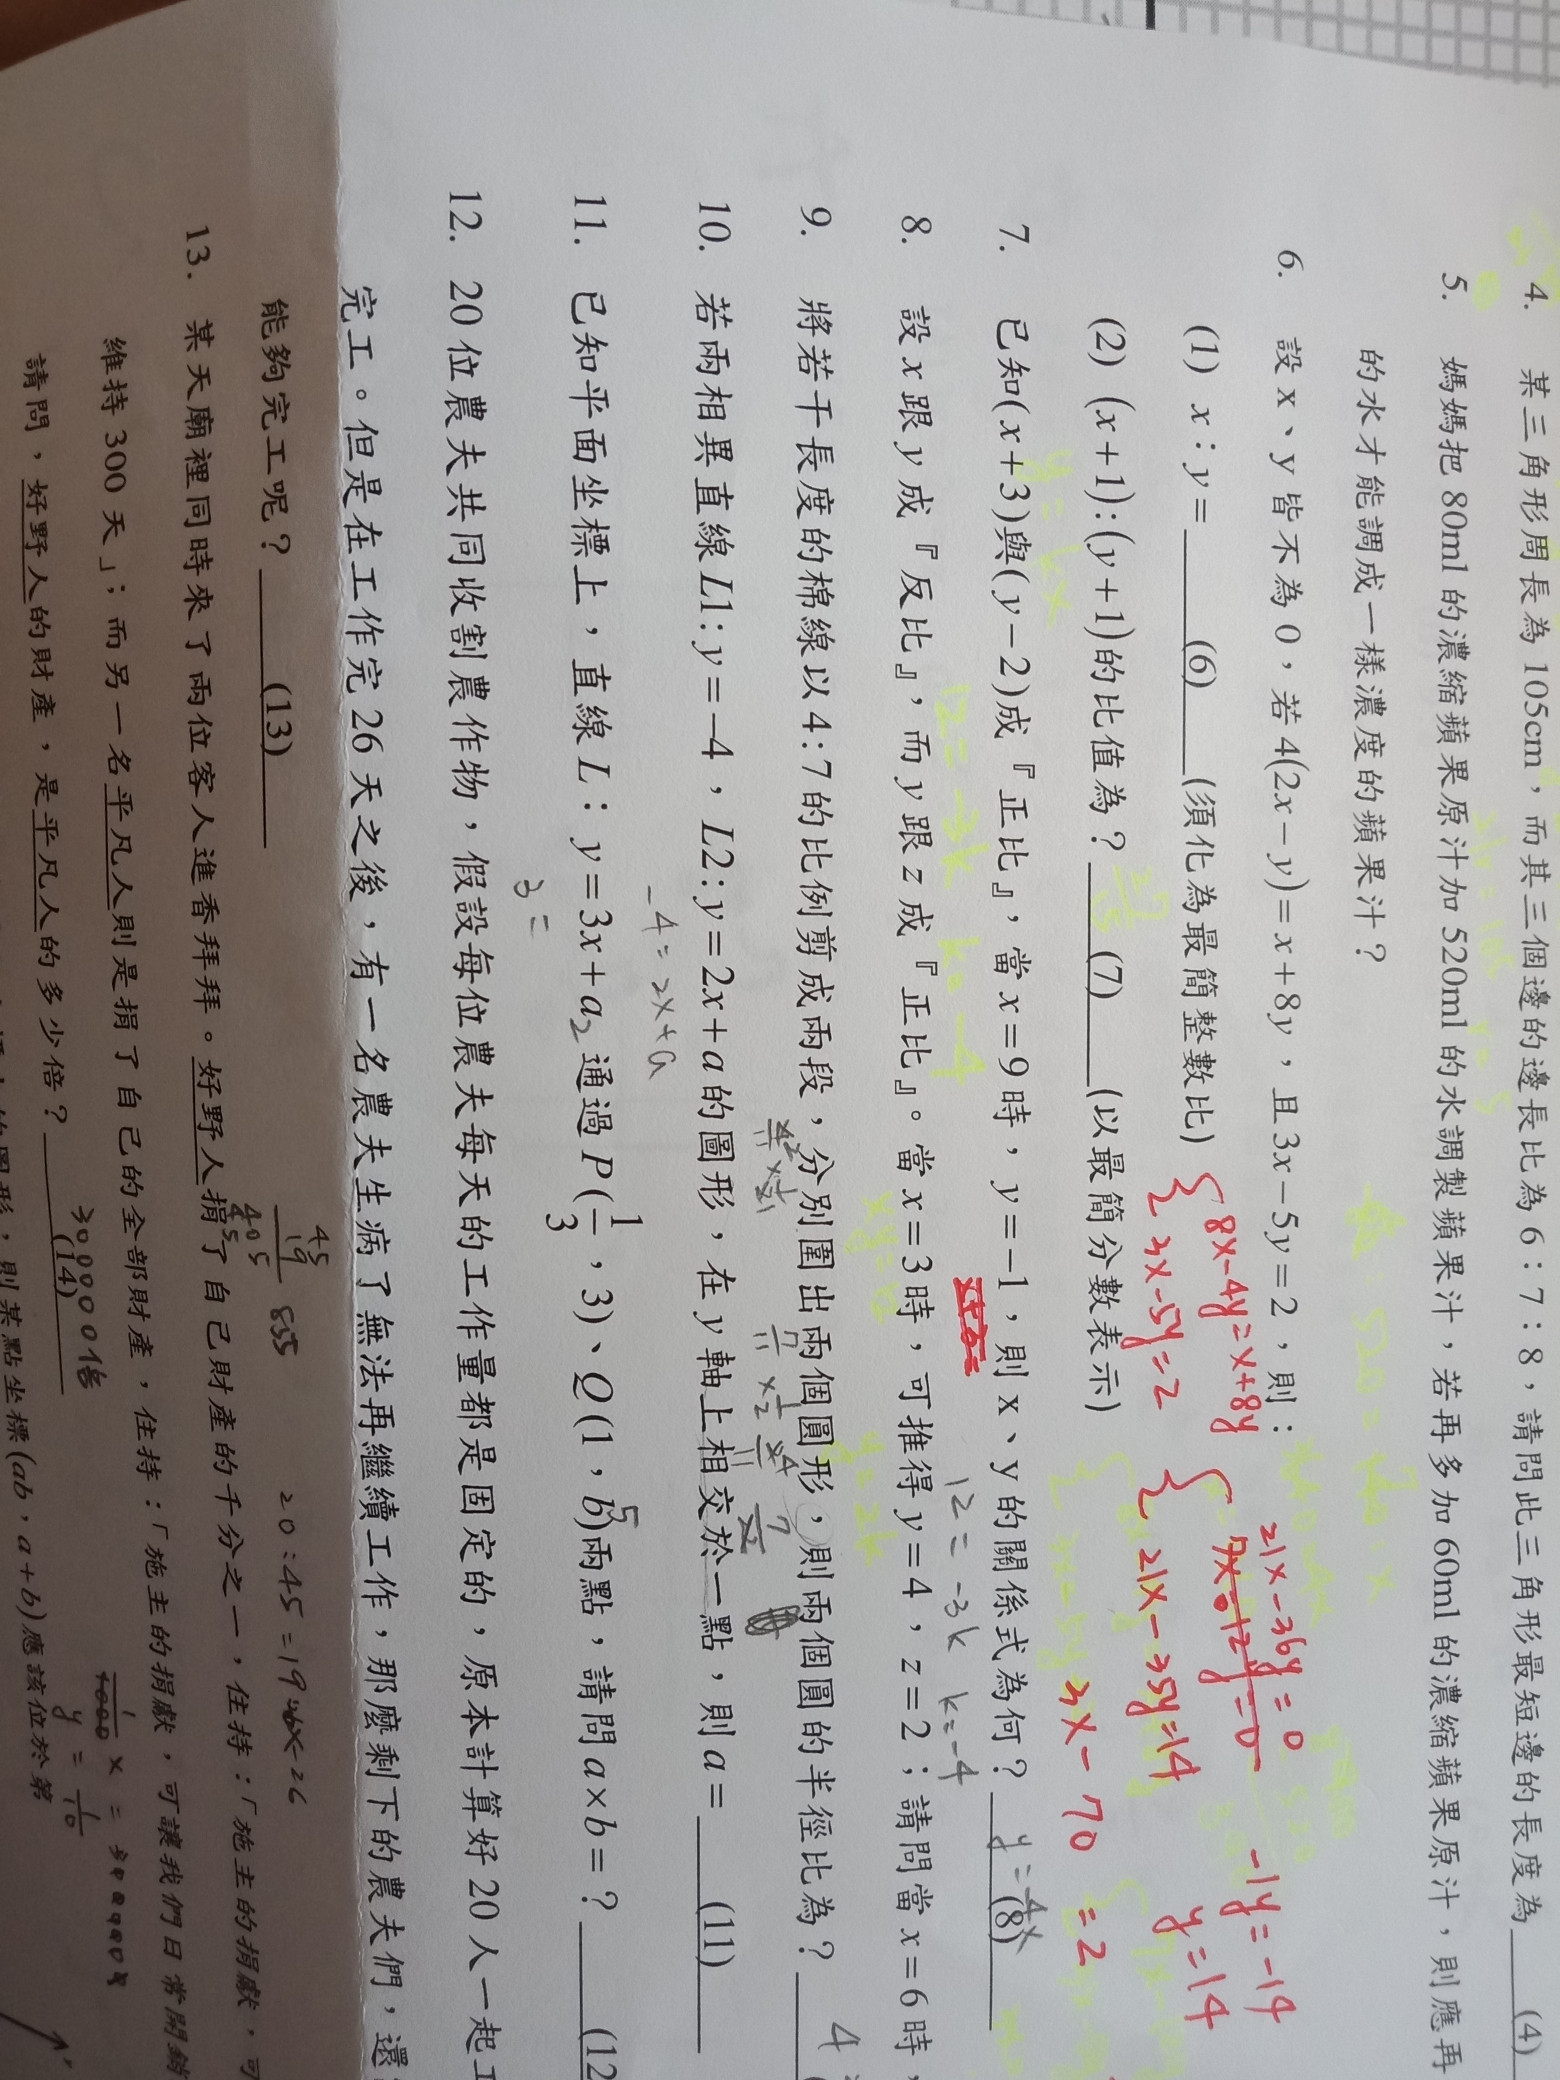 4. 某三角形周長為 105cm，而其三個邊的邊長比為 6：7：8，請問此三角形最短邊的長度為 (4)
5. 媽媽把 80ml 的濃縮蘋果原汁加 520ml 的水調製蘋果汁，若再多加 60ml 的濃縮蘋果原汁，則應再
的水才能調成一樣濃度的蘋果汁？
6. 設 x、y 皆不為 0，若 4(2x−y)=x+8y，且 3x−5y=2，則：
(1) x：y= (6) (須化為最簡整數比)
{ 8x-4y=x+8y
3x-5y=2
21x-36y=0
21x-35y=14
-1y=-14
y=14
(2) (x+1):(y+1)的比值為？ (7) (以最簡分數表示)
3x-70=2
7. 已知(x+3)與(y−2)成『正比』，當 x=9 時，y=−1，則 x、y 的關係式為何？ (8)
y=kx
12=-3k k=-4
12=-3k k=-4
8. 設 x 跟 y 成『反比』，而 y 跟 z 成『正比』。當 x=3 時，可推得 y=4，z=2；請問當 x=6 時，
xy=12
y=2k
9. 將若干長度的棉線以 4:7 的比例剪成兩段，分別圍出兩個圓形，則兩個圓的半徑比為？ 4
10. 若兩相異直線 L1:y=−4，L2:y=2x+a 的圖形，在 y 軸上相交於一點，則 a= (11)
-4=2x+a
11. 已知平面坐標上，直線 L：y=3x+a 通過 P(1/3，3)、Q(1，b)兩點，請問 a×b=？ (12
2
5
3=
12. 20 位農夫共同收割農作物，假設每位農夫每天的工作量都是固定的，原本計算好 20 人一起工
完工。但是在工作完 26 天之後，有一名農夫生病了無法再繼續工作，那麼剩下的農夫們，還
能夠完工呢？ (13)
45
19
405
45
855
13. 某天廟裡同時來了兩位客人進香拜拜。好野人捐了自己財產的千分之一，住持：「施主的捐獻，可
維持 300 天」；而另一名平凡人則是捐了自己的全部財產，住持：「施主的捐獻，可讓我們日常開銷
請問，好野人的財產，是平凡人的多少倍？ (14)
300000倍
y = 1/10
則某點坐標(ab，a+b)應該位於第